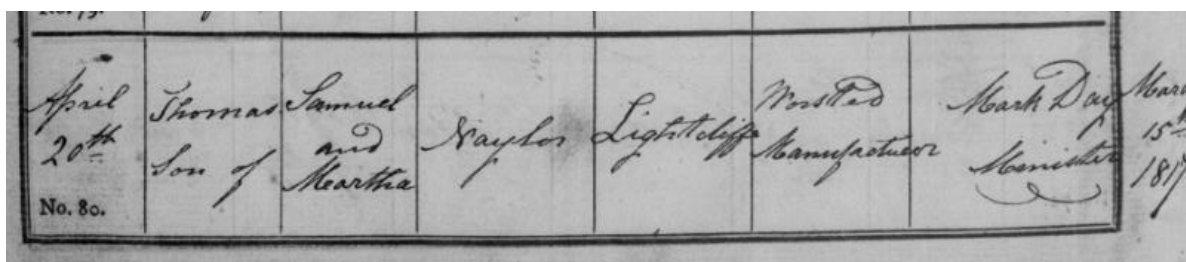 April
20th
No. 80.
Thomas
Son of
Samuel
and
Martha
Naylor
Lightcliffe
Worsted
Manufacturer
Mark Day
Minister
15th